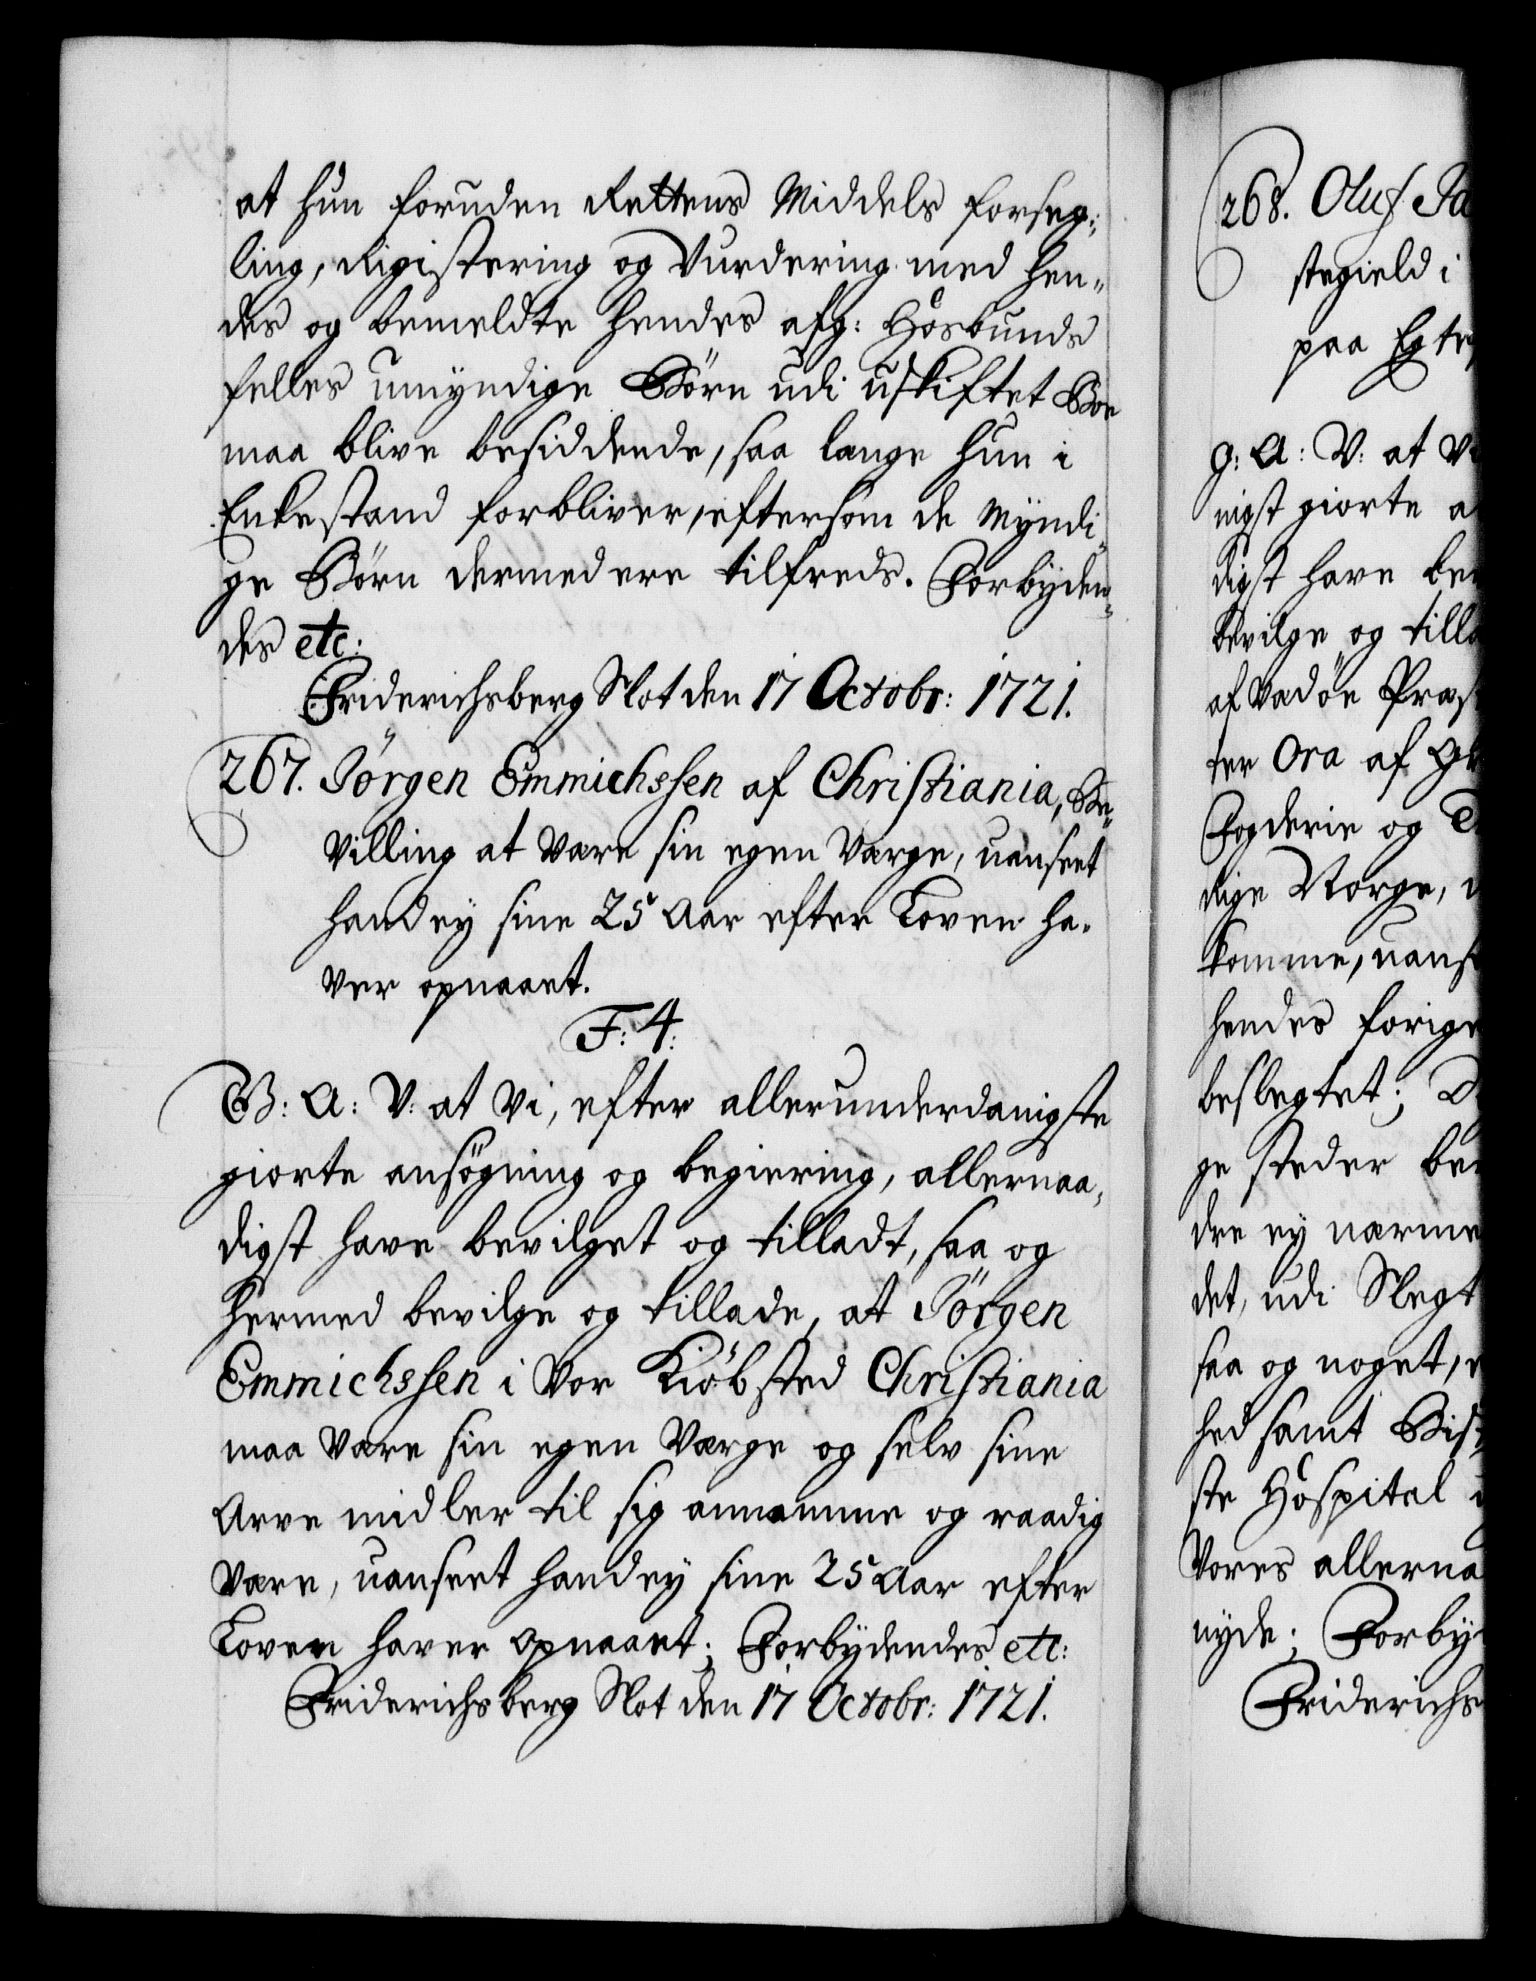 at hun foruden Rettens Middels forseg-
ling, Registering og Vurdering med hen-
des og bemeldte hendes afg: Hosbunds
felles umyndige Börn udi uskiftet Boe
maa blive besiddende, saa lenge hun i
Enkestand forbliver, eftersom de Myndi-
ge Börn dermed ere tilfreds. Forbyden-
des etc:
Friderichsberg Slot den 17 Octobr: 1721.
267. Jörgen Emmichssen af Christiania, Be-
villing at være sin egen Værge, uanseet
hand ey sine 25 Aar efter Loven ha-
ver opnaaet.
F: 4:
G: A: V: at Vi, efter allerunderdanigste
giorte ansögning og begiering, allernaa-
digst have bevilget og tilladt, saa og
hermed bevilge og tillade, at Jörgen
Emmichssen i Vor Kiöbsted Christiania
maa være sin egen Værge og selv sine
Arve midler til sig annamme og raadig
være, uanseet hand ey sine 25 Aar efter
Loven haver opnaaet; Forbydendes etc:
Friderichsberg Slot den 17 Octobr: 1721.
268. Oluf
stegield i
paa
g: A: V: at
nigst giorte
digst have
bevilge og
af Vadöe
ter Ora af
Fogderie og
rige Norge,
komme,
hendes
beslegtet;
ge steder
dre ey
det, udi Slegt
saa og noget,
hed samt
ste Hospital
Vores
nyde;